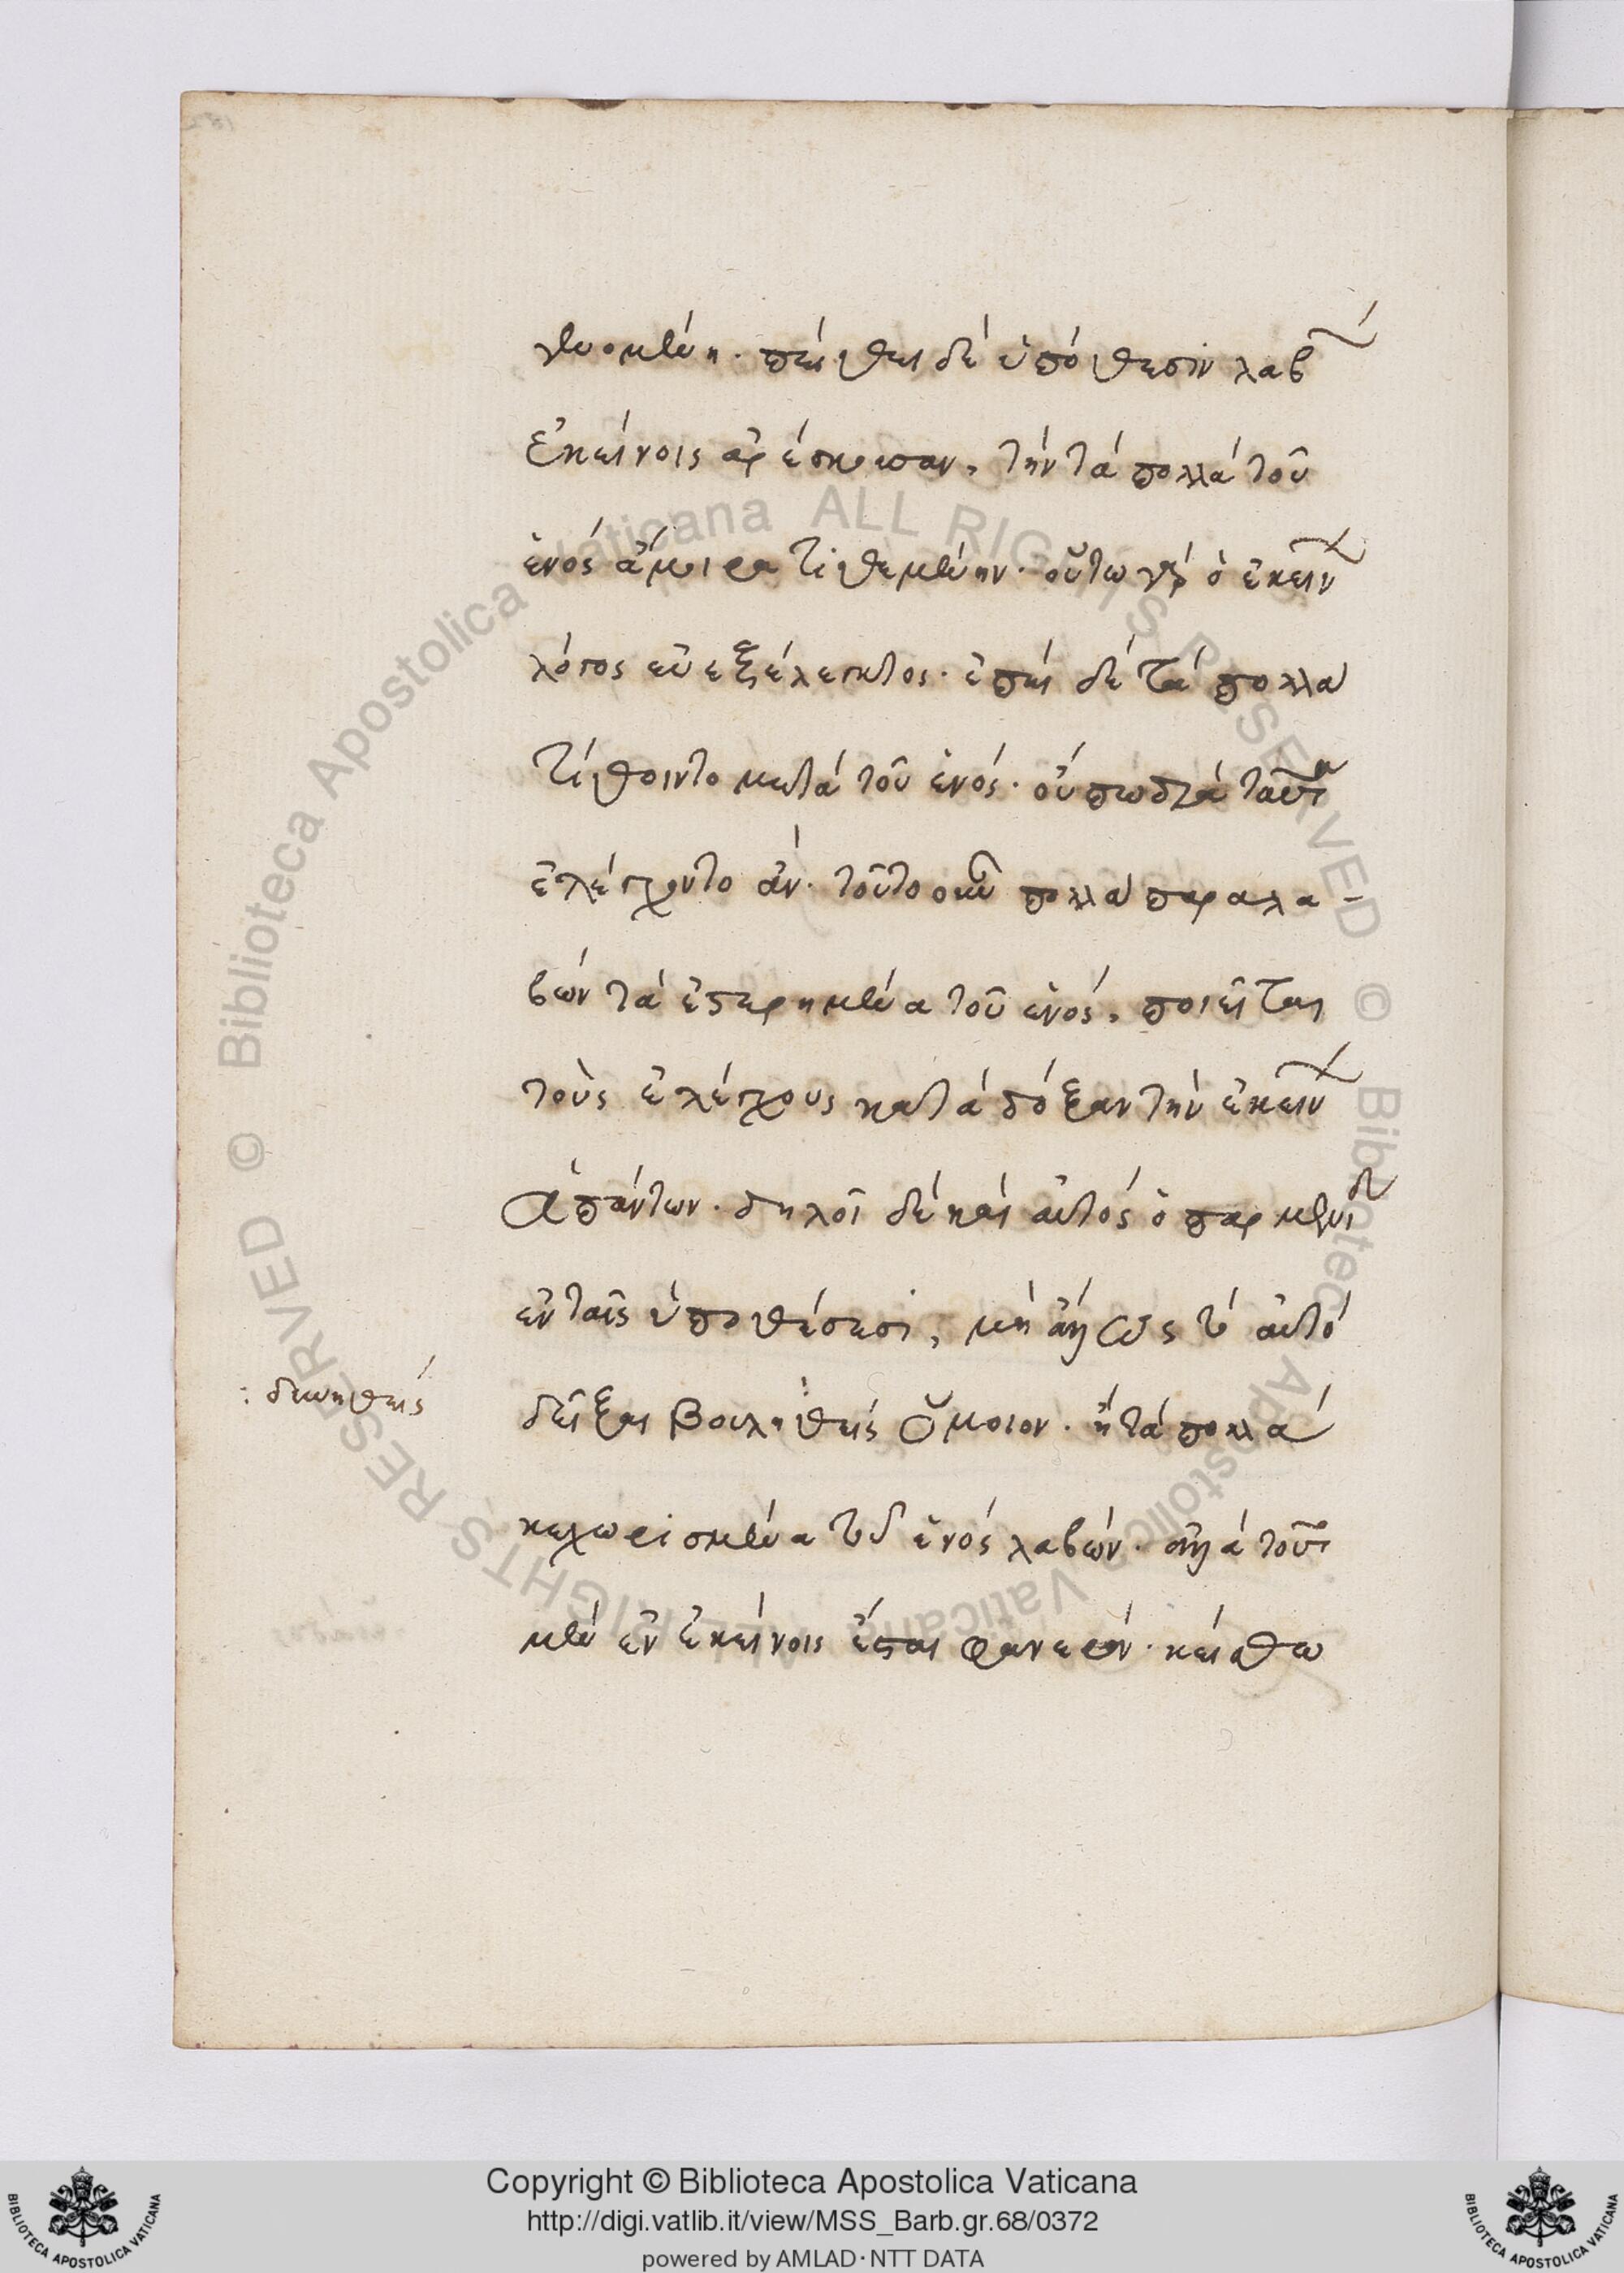 γενομένη. πείθει δὲ ὑπόθεσιν λαβ
ἐκείνοις ἀρέσκουσαν, τὴν τὰ πολλὰ τοῦ
ἑνὸς ἄμοιρα τιθεμένην. οὕτω γὰρ ὁ ἐκείν
λόγος εὐεξέλεγκτος. ἐπεὶ δὲ τὰ πολλὰ
τίθοιντο μετὰ τοῦ ἑνός. οὔπω διὰ ταῦτα
ἐλέγχοντο ἄν. τοῦτο οὖν πολλὰ παραλα-
βὼν τὰ ἐστερημένα τοῦ ἑνός, ποιεῖται
τοὺς ἐλέγχους κατὰ δόξαν τὴν ἐκείν
ἁπάντων. δηλοῖ δὲ καὶ αὐτὸς ὁ παρμενίδ
ἐν ταῖς ὑποθέσεσι, μὴ ἄλλως τὸ αὐτὸ
: διωηθεὶς
δεῖξαι βουληθεὶς ὅμοιον. ἢ τὰ πολλὰ
κεχωρισμένα τοῦ ἑνὸς λαβών. ἀλλὰ τοῦτο
μὲν ἐν ἐκείνοις ἔσται φανερόν. κείσθω
Copyright © Biblioteca Apostolica Vaticana
http://digi.vatlib.it/view/MSS_Barb.gr.68/0372
powered by AMLAD·NTT DATA
BIBLIOTECA APOSTOLICA VATICANA
BIBLIOTECA APOSTOLICA VATICANA
© Biblioteca Apostolica Vaticana ALL RIGHTS RESERVED
© Biblioteca Apostolica Vaticana ALL RIGHTS RESERVED